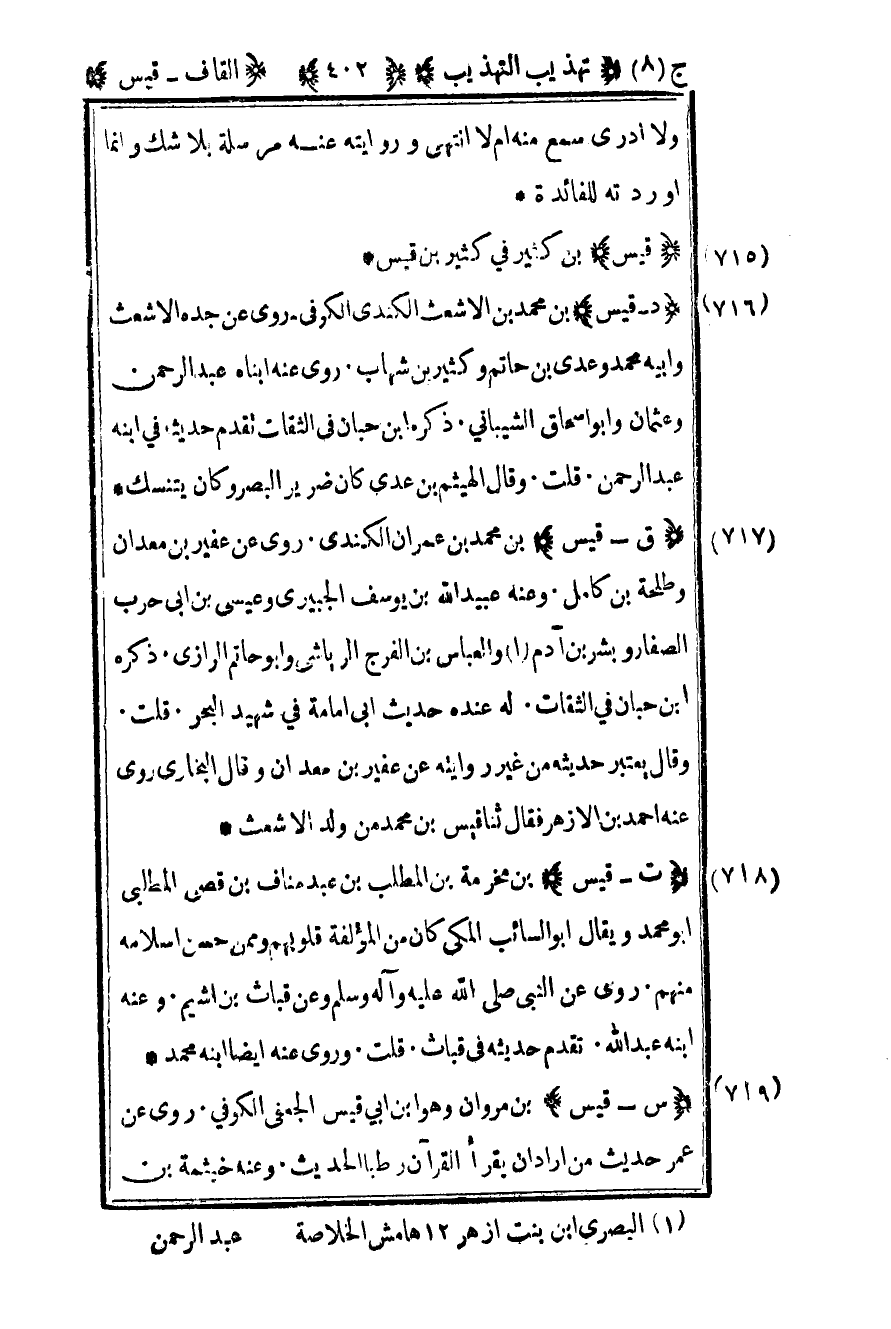 ج (٨) ﴿ تهذيب التهذيب ﴾ ﴿ ٤٠٢ ﴾ ﴿ القاف ـ قيس ﴾
ولا ادرى سمع منه ام لا انتهى و روايته عنه مرسلة بلا شك و انما
اوردته للفائدة *
(٧١٥) ﴿ قيس ﴾ بن كثير في كثير بن قيس *
(٧١٦) ﴿ د ـ قيس ﴾ بن محمد بن الاشعث الكندى الكوفى . روى عن جده الاشعث
وابيه محمد وعدى بن حاتم و كثير بن شهاب . روى عنه ابناه عبد الرحمن
وعثمان وابو اسحاق الشيباني . ذكره ابن حبان فى الثقات تقدم حديثه في ابنه
عبد الرحمن . قلت . وقال الهيثم بن عدي كان ضرير البصر وكان يتنسك *
(٧١٧) ﴿ ق ـ قيس ﴾ بن محمد بن عمران الكندى . روى عن عفير بن معدان
وطلحة بن كامل . وعنه عبيد الله بن يوسف الجبيرى وعيسى بن ابى حرب
الصفار و بشر بن آدم (١) والعباس بن الفرج الرياشي وابو حاتم الرازى . ذكره
ابن حبان في الثقات . له عنده حديث ابى امامة في شهيد البحر . قلت .
وقال يعتبر حديثه من غير روايته عن عفير بن معدان و قال البخارى روى
عنه احمد بن الازهر فقال ثنا قيس بن محمد من ولد الاشعث *
(٧١٨) ﴿ ت ـ قيس ﴾ بن مخرمة بن المطلب بن عبد مناف بن قصى المطلبى
ابو محمد و يقال ابو السائب المكي كان من المؤلفة قلوبهم وممن حسن اسلامه
منهم . روى عن النبى صلى الله عليه وآله وسلم وعن قباث بن اشيم . و عنه
ابنه عبد الله . تقدم حديثه فى قباث . قلت . وروى عنه ايضا ابنه محمد *
(٧١٩) ﴿ س ـ قيس ﴾ بن مروان وهو ابن ابي قيس الجعفى الكوفي . روى عن
عمر حديث من اراد ان يقرأ القرآن رطبا الحديث . وعنه خيثمة بن
(١) البصرى ابن بنت ازهر ١٢ هامش الخلاصة عبد الرحمن